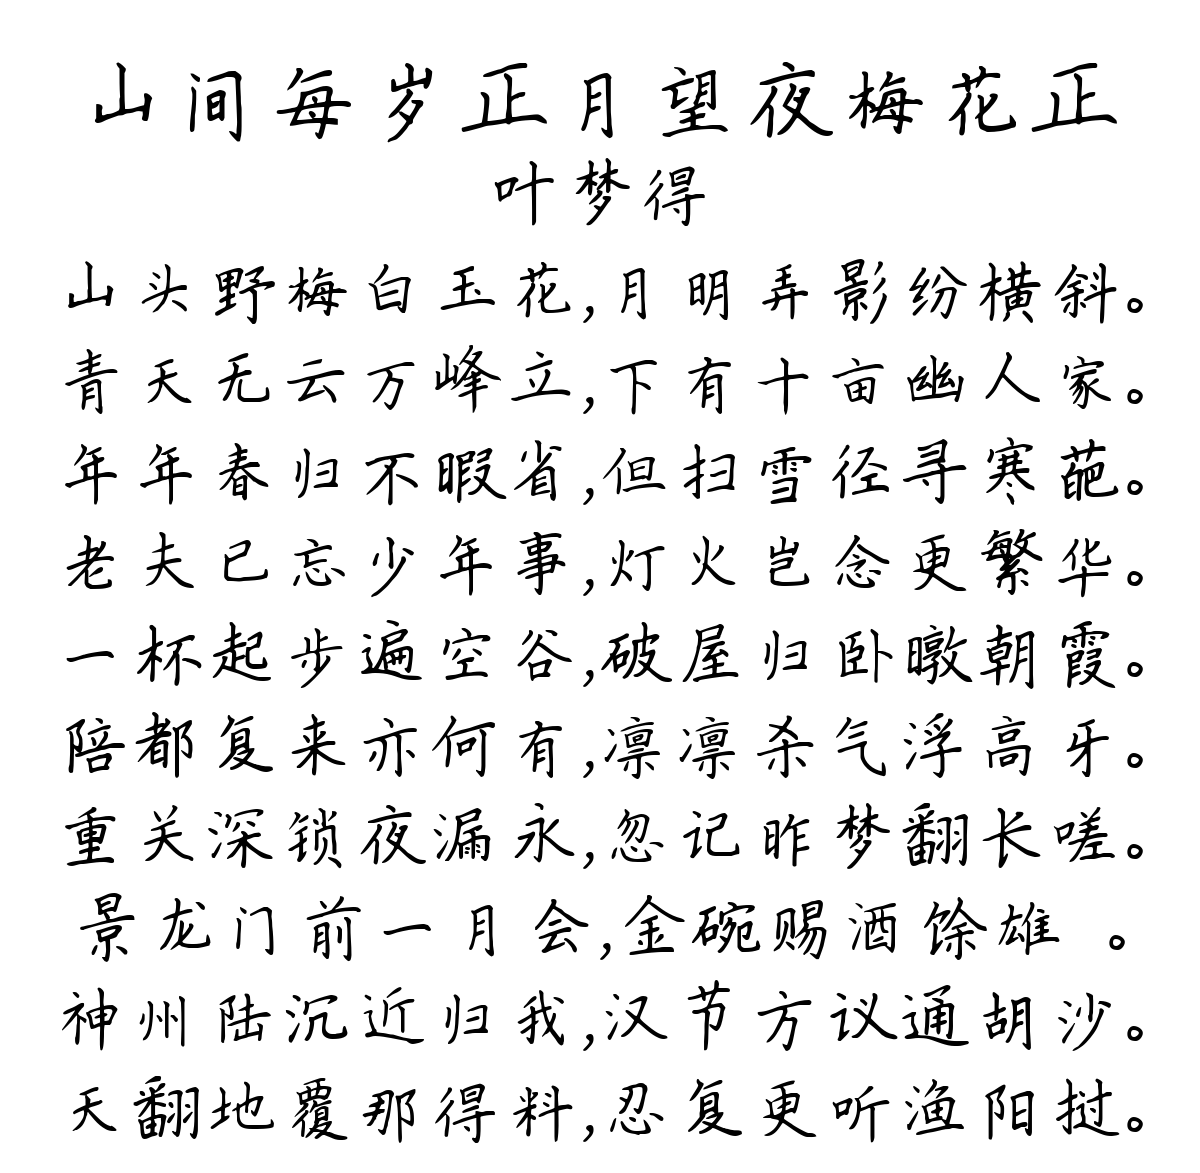 山间每岁正月望夜梅花正
叶梦得
山头野梅白玉花,月明弄影纷横斜。
青天无云万峰立,下有十亩幽人家。
年年春归不暇省,但扫雪径寻寒葩。
老夫已忘少年事,灯火岂念更繁华。
一杯起步遍空谷,破屋归卧暾朝霞。
陪都复来亦何有,凛凛杀气浮高牙。
重关深锁夜漏永,忽记昨梦翻长嗟。
景龙门前一月会,金碗赐酒馀雄 。
神州陆沉近归我,汉节方议通胡沙。
天翻地覆那得料,忍复更听渔阳挝。